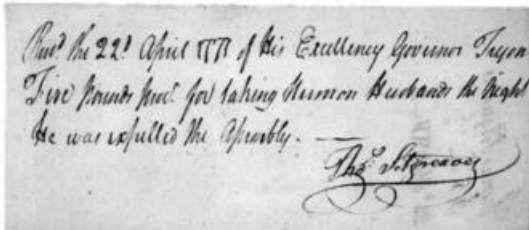 Recd. the 22d. April 1771 of His Excellency Governor Tryon
Five Pounds for taking Hermon Husbands the Night
He was expelled the Assembly. —
Thos.